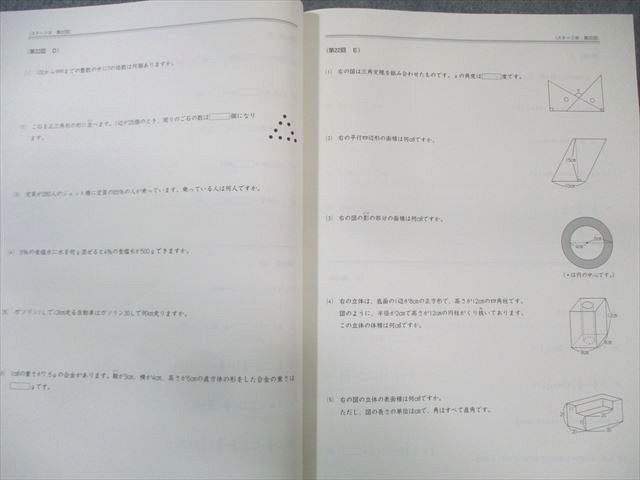 (第22回 D)
(1) 100から999までの整数の中に7の倍数は何個ありますか。
(2) ご石を正三角形の形に並べます。1辺が25個のとき、周りのご石の数は 個になり
ます。
(3) 定員が280人のジェット機に定員の85%の人が乗っています。乗っている人は何人ですか。
(4) の食塩水に水を何g混ぜると4%の食塩水が500gできますか。
ガソリン1Lで12km走る自動車はガソリン30Lで何km走りますか。
1㎤の重さが7.5gの合金があります。縦が3cm、横が4cm、高さが5cmの直方体の形をした合金の重さは
gです。
(第22回 E)
(1) 右の図は三角定規を組み合わせたものです。xの角度は 度です。
(2) 右の平行四辺形の面積は何㎠ですか。
15cm
(3) 右の図の影の部分の面積は何㎠ですか。
4cm
(•は円の中心です。)
(4) 右の立体は、底面の1辺が8cmの正方形で、高さが12cmの四角柱です。
図のように、半径が2cmで高さが12cmの円柱がくり抜いてあります。
この立体の体積は何㎤ですか。
12cm
8cm
8cm
(5) 右の図の立体の表面積は何㎠ですか。
ただし、図の長さの単位はcmで、角はすべて直角です。